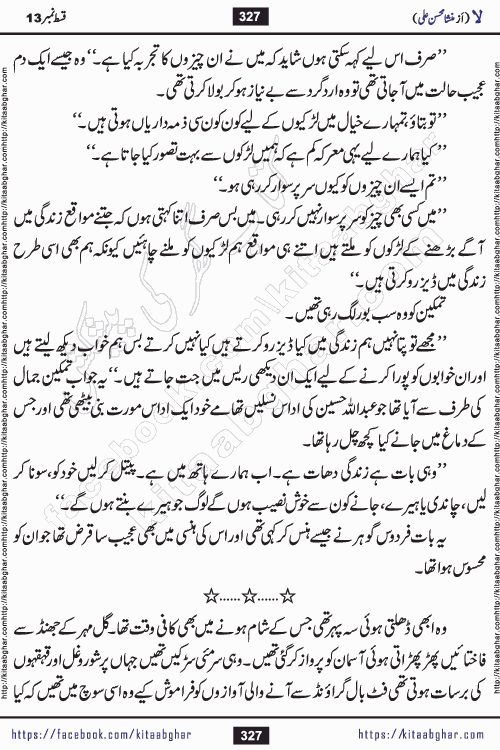 لا (از منشا محسن علی)
327
قسط نمبر 13
’’صرف اس لیے کہہ سکتی ہوں شاید کہ میں نے ان چیزوں کا تجربہ کیا ہے۔‘‘ وہ جیسے ایک دم
عجیب حالت میں آ جاتی تھی تو وہ ارد گرد سے بے نیاز ہو کر بولا کرتی تھی ۔
’’تو بتاؤ تمہارے خیال میں لڑکیوں کے لیے کون کون سی ذمہ داریاں ہوتی ہیں۔‘‘
’’کیا ہمارے لیے یہی معرکہ کم ہے کہ ہمیں لڑکوں سے بہت تصور کیا جاتا ہے۔‘‘
’’تم ایسے ان چیزوں کو کیوں سر پر سوار کر رہی ہو۔‘‘
’’میں کسی بھی چیز کو سر پر سوار نہیں کر رہی۔ میں بس صرف اتنا کہتی ہوں کہ جتنے مواقع زندگی میں
آگے بڑھنے کے لڑکوں کو ملتے ہیں اتنے ہی مواقع ہم لڑکیوں کو ملنے چاہئیں کیونکہ ہم بھی اسی طرح
زندگی میں ڈیزرو کرتی ہیں ۔‘‘
تمکین کو وہ سب بور لگ رہی تھیں ۔
’’مجھے تو پتا نہیں ہم زندگی میں کیا ڈیزرو کرتے ہیں کیا نہیں کرتے بس ہم خواب دیکھ لیتے ہیں
اور ان خوابوں کو پورا کرنے کے لیے ایک ان دیکھی ریس میں جت جاتے ہیں ۔‘‘ یہ جواب تمکین جمال
کی طرف سے آیا تھا جو عبداللہ حسین کی اداس نسلیں تھامے خود ایک اداس مورت بنی بیٹھی تھی اور جس
کے دماغ میں جانے کیا کچھ چل رہا تھا۔
’’وہی بات ہے زندگی دھات ہے۔ اب ہمارے ہاتھ میں ہے۔ پیتل کر لیں خود کو، سونا کر
لیں، چاندی یا ہیرے، جانے کون سے خوش نصیب ہوں گے لوگ جو ہیرے بنتے ہوں گے ۔‘‘
یہ بات فردوس گوہر نے جیسے ہنس کر کہی تھی اور اس کی ہنسی میں بھی عجیب سا قرض تھا جو ان کو
محسوس ہوا تھا۔
☆......☆......☆
وہ ابھی ڈھلتی ہوئی سہ پہر تھی جس کے شام ہونے میں بھی کافی وقت تھا۔ گل مہر کے جھنڈ سے
فاختائیں پھڑپھڑاتی ہوئی آسمان کو پرواز کر گئی تھیں ۔ وہی سرمئی سڑکیں تھیں جہاں پر شور و غل اور قہقہوں
کی برسات ہوتی تھی فٹ بال گراؤنڈ سے آنے والی آوازوں کو فراموش کیے وہ اسی سوچ میں تھیں کہ کیا
https://facebook.com/kitaabghar
327
https://kitaabghar.com